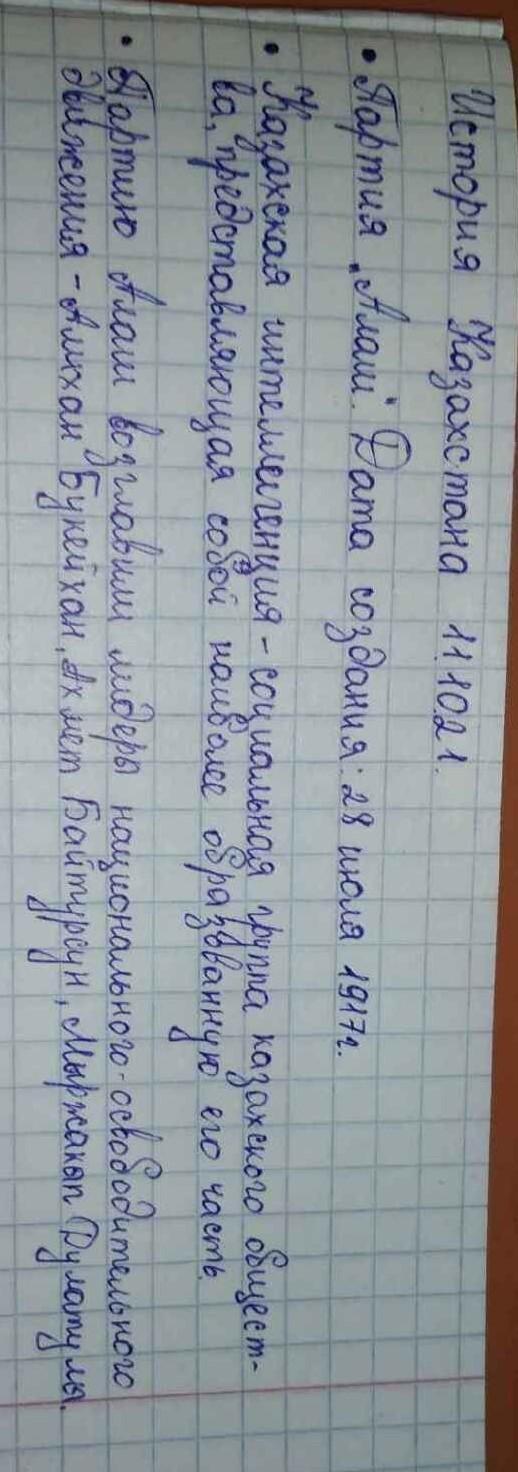 История Казахстана 11.10.21.
• Партия „Алаш". Дата создания: 28 июля 1917г.
• Казахская интеллегенция - социальная группа казахского общест-
ва, представляющая собой наиболее образованную его часть.
• Партию Алаш возглавили лидеры национального-освободительного
движения - Алихан Букейхан, Ахмет Байтурсун, Мыржакып Дулатулы.